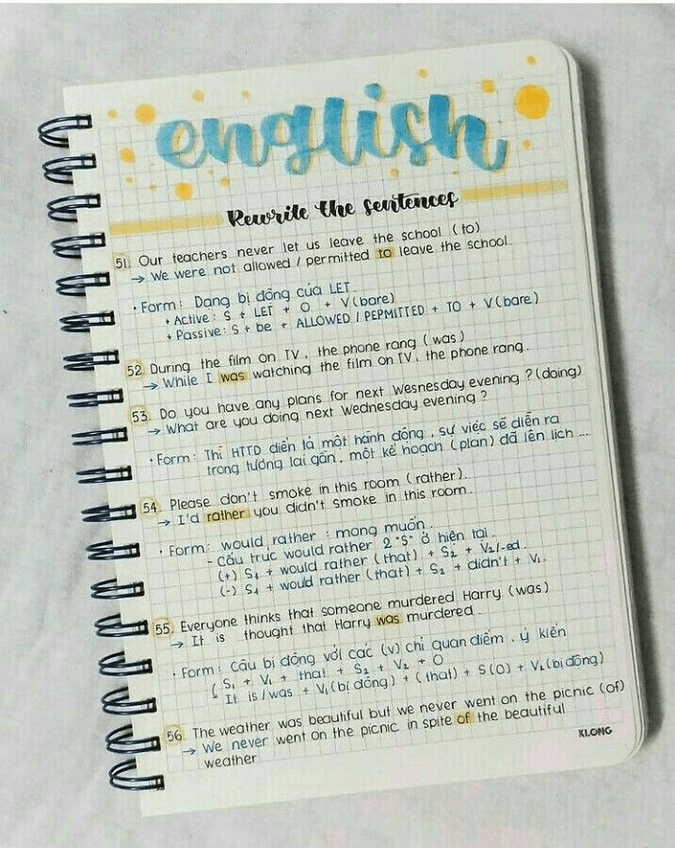 english
Rewrite the sentences
51. Our teachers never let us leave the school (to)
→ We were not allowed / permitted to leave the school.
• Form: Dạng bị động của LET.
+ Active: S + LET + O + V(bare)
+ Passive: S + be + ALLOWED / PEPMITTED + TO + V(bare)
52. During the film on TV, the phone rang (was)
→ While I was watching the film on TV, the phone rang.
53. Do you have any plans for next Wesnesday evening ? (doing)
→ What are you doing next Wednesday evening ?
• Form: Thì HTTD diễn tả một hành động, sự việc sẽ diễn ra
trong tương lai gần, một kế hoạch (plan) đã lên lịch ...
54. Please don't smoke in this room (rather).
→ I'd rather you didn't smoke in this room.
• Form: would rather : mong muốn.
- Cấu trúc would rather 2 "S" ở hiện tại.
(+) S₁ + would rather (that) + S₂ + V₂/-ed.
(-) S₁ + would rather (that) + S₂ + didn't + V.
55. Everyone thinks that someone murdered Harry (was)
→ It is thought that Harry was murdered.
• Form: Câu bị động với các (v) chỉ quan điểm, ý kiến
S₁ + V₁ + that + S₂ + V₂ + O
It is/was + V₁(bị động) + (that) + S(O) + V₂(bị động)
56. The weather was beautiful but we never went on the picnic (of)
→ We never went on the picnic in spite of the beautiful
weather
KLONG